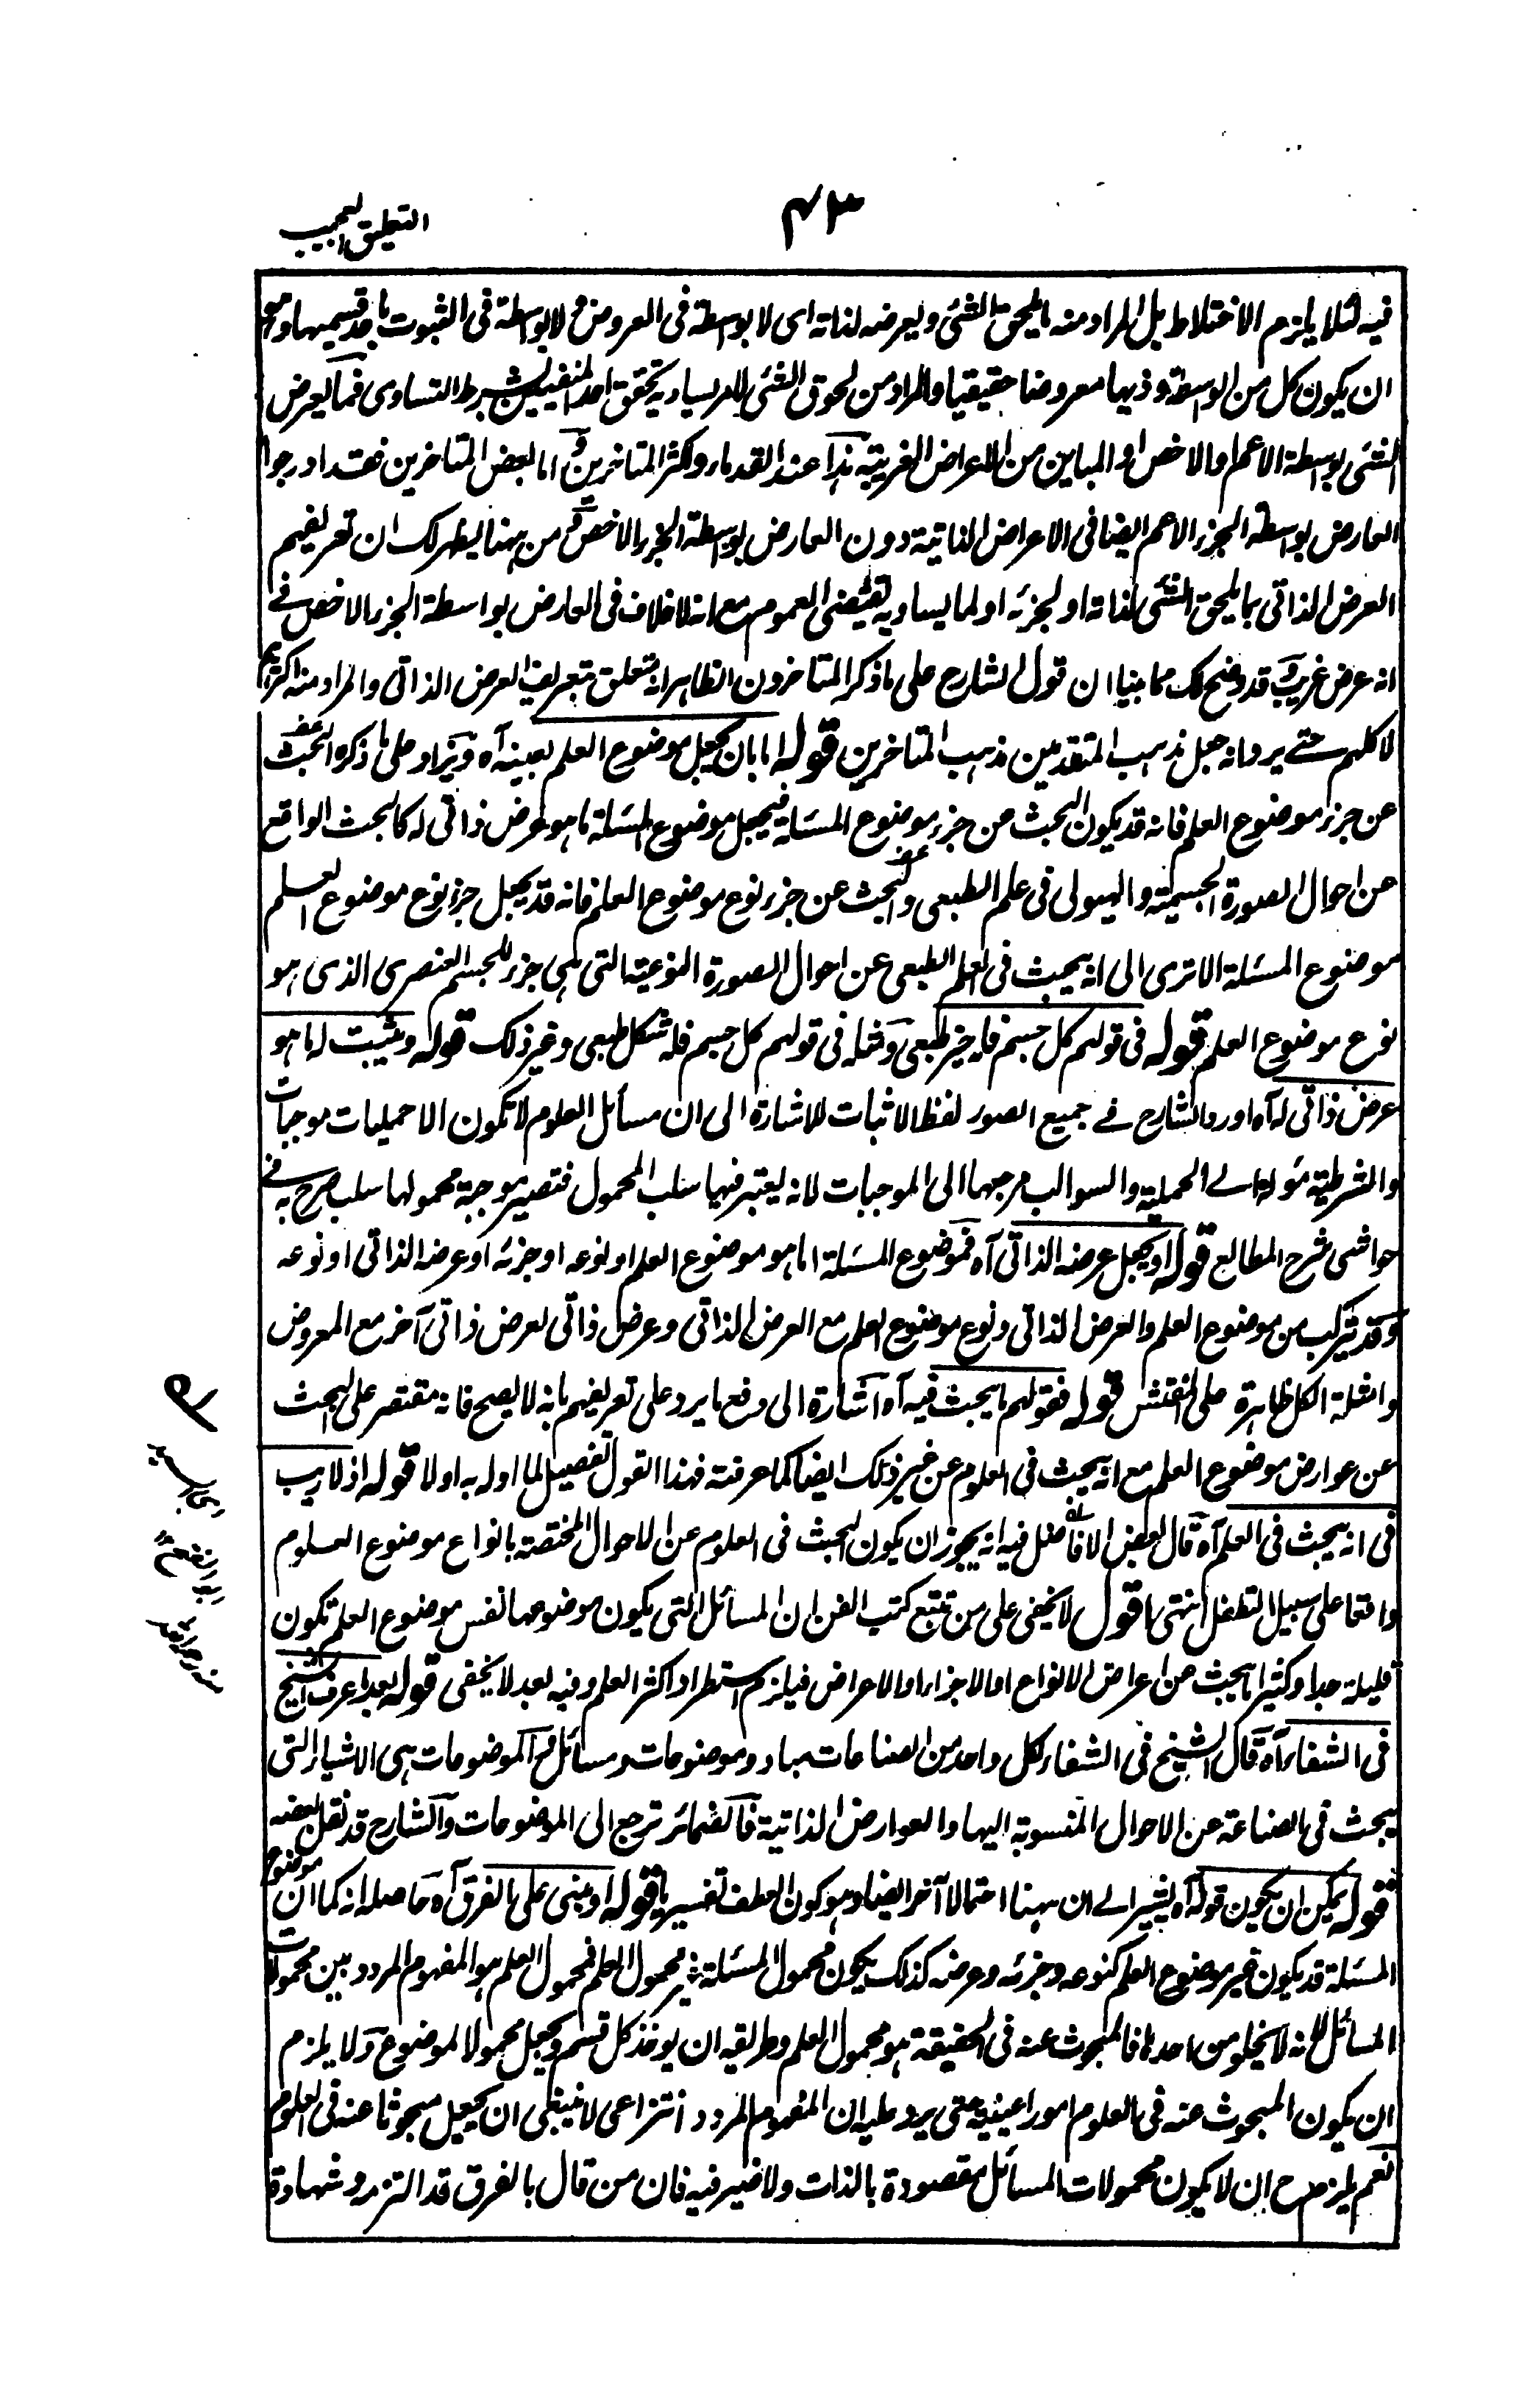 التعليق العجيب
٤٣
فيه لئلا يلزم الاختلاط بل المراد منه ما يلحق الشئ ويعرضه لذاته اى لا بواسطة فى العروض ولا بواسطة فى الثبوت باحد قسيميها وهو
ان يكون كل من الواسطة وذيها معروضا حقيقيا والمراد من لحوق الشئ لامر يساويه تحقق احد المنفيين بشرط التساوى فما يعرض
الشئ بواسطة الاعم والاخص او المباين من الاعراض الغريبة هذا عند القدماء واكثر المتاخرين واما بعض المتاخرين فقد ادرجوا
العارض بواسطة الجزء الاعم ايضا فى الاعراض الذاتية دون العارض بواسطة الجزء الاخص ومن ههنا يظهر لك ان تعريفهم
العرض الذاتى بما يلحق الشئ لذاته او لجزئه او لما يساويه يقتضى العموم مع انه لا خلاف فى العارض بواسطة الجزء الاخص فى
انه عرض غريب وقد وضح لك مما بينا ان قول الشارح على ما ذكر المتاخرون الظاهر انه متعلق بتعريف العرض الذاتى والمراد منه اكثرهم
لا كلهم حتى يرد انه جعل مذهب المتقدمين مذهب المتاخرين قوله اما بان يجعل موضوع العلم بعينه آه ويزاد على ما ذكره البحث
عن جزء موضوع العلم فانه قد يكون البحث من جزء موضوع المسئلة فيجعل موضوع المسئلة ما هو عرض ذاتى له كالبحث الواقع
عن احوال الصورة الجسمية والهيولى فى علم الطبعى والبحث عن جزء نوع موضوع العلم فانه قد يجعل جزء نوع موضوع العلم
موضوع المسئلة الا ترى الى انه يبحث فى العلم الطبعى عن احوال الصورة النوعية التى هى جزء للجسم العنصرى الذى هو
نوع موضوع العلم قوله فى قولهم كل جسم فله حيز طبعى ومثله فى قولهم كل جسم فله شكل طبعى وغير ذلك قوله ويثبت له ما هو
عرض ذاتى له آه اورد الشارح فى جميع الصور لفظ الاثبات للاشارة الى ان مسائل العلوم لا تكون الا حمليات موجبات
والشرطية مؤولة الى الحملية والسوالب مرجعها الى الموجبات لانه يعتبر فيها سلب المحمول فتصير موجبة محمولها سلب صرح به فى
حواشى شرح المطالع قوله او يجعل عرضه الذاتى آه فموضوع المسئلة اما هو موضوع العلم او نوعه او جزئه او عرضه الذاتى او نوعه
وقد يتركب من موضوع العلم والعرض الذاتى ونوع موضوع العلم مع العرض الذاتى وعرض ذاتى لعرض ذاتى آخر مع المعروض
وامثلة الكل ظاهرة على المفتش قوله فقولهم ما يبحث فيه آه اشارة الى دفع ما يرد على تعريفهم بانه لا يصح فانه مقتصر على البحث
عن عوارض موضوع العلم مع انه يبحث فى العلوم عن غير ذلك ايضا كما عرفت فهذا القول تفصيل لما اوله به اولا قوله اذ لا ريب
فى انه يبحث فى العلم آه قال بعض الافاضل فيه انه يجوز ان يكون البحث فى العلوم عن الاحوال المختصة بانواع موضوع العلوم
واقعا على سبيل التطفل انتهى اقول لا يخفى على من تتبع كتب الفن ان المسائل التى يكون موضوعها نفس موضوع العلم تكون
قليلة جدا وكثيرا ما يبحث عن اعراض الانواع او الاجزاء او الاعراض فيلزم استطراد اكثر العلم وفيه بعد لا يخفى قوله بعد ما عرف الشيخ
فى الشفاء آه قال الشيخ فى الشفاء لكل واحد من الصناعات مباد وموضوعات ومسائل فالموضوعات هى الاشياء التى
يبحث فى الصناعة عن الاحوال المنسوبة اليها والعوارض الذاتية فالضمائر ترجع الى الموضوعات والشارح قد نقل بعضه
قوله يمكن ان يكون قوله آه يشير الى ان ههنا احتمالا آخر ايضا وهو كون العطف تفسيريا قوله او مبنى على الفرق آه حاصله انه كما ان موضوع
المسئلة قد يكون غير موضوع العلم كنوعه وجزئه وعرضه كذلك يكون محمول المسئلة غير محمول العلم فمحمول العلم هو المفهوم المردد بين محمولات
المسائل لانه لا يخلو من احدها فالمبحوث عنه فى الحقيقة هو محمول العلم وطريقه ان يوخذ كل قسم ويجعل محمولا لموضوع ولا يلزم
ان يكون المبحوث عنه فى العلوم امورا عينية حتى يرد عليه ان المفهوم المردد انتزاعى لا ينبغى ان يجعل مبحوثا عنه فى العلوم
نعم يلزم ح ان لا يكون محمولات المسائل مقصودة بالذات ولا ضير فيه فان من قال بالفرق قد التزمه وشهادة